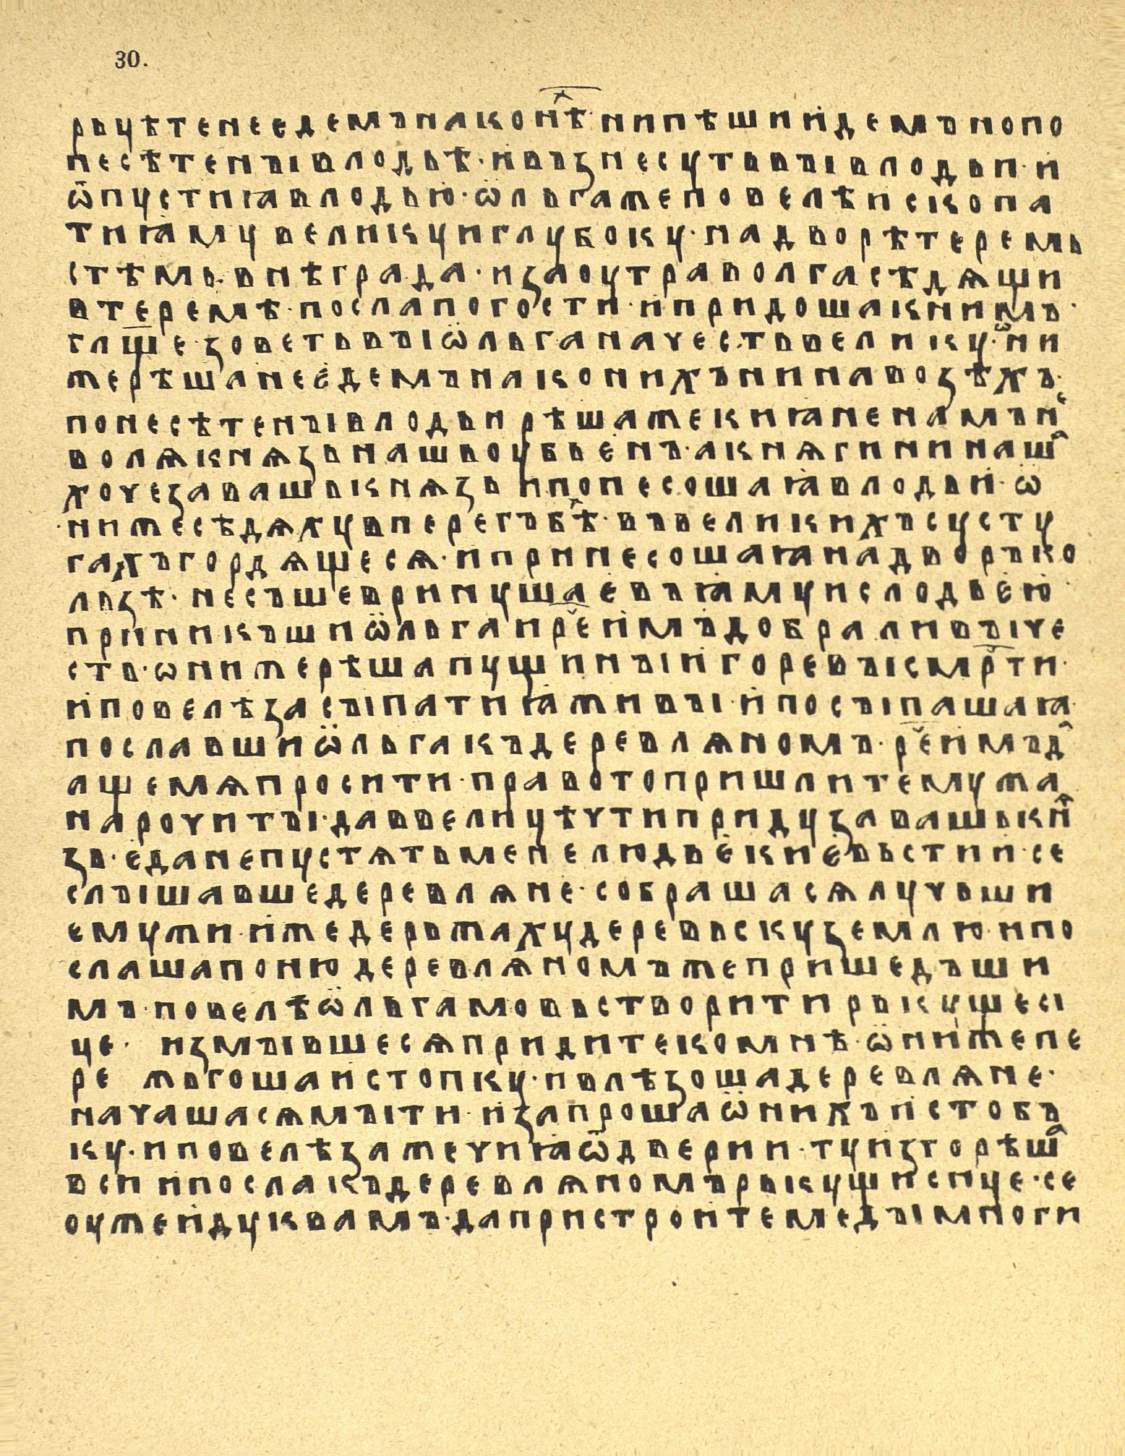 30.
рьцѣтенеедемънаконѣ̑хнипѣшиидемънопо
несѣтенъівлодьѣ·ивъзнесутьвъівлодьи·и
ѿпустиꙗвлодью·ѡльгажеповелѣископа
тиꙗмувеликуиглубоку·надворѣтеремь
стѣмь·внѣграда·изаоутраволгасѣдѧщи
втеремѣ·посlапогости·ипридошакнимъ·
глщ҃езоветьвъіѡльганачестьвелику·ѡ҃ни
жерѣшанеедемънаконихънинавозѣхъ·
понесѣтенъівлодьирѣшажекиꙗненамънⷭ
волѧкнѧзьнашьоубьенъ·акнѧгининашⷶ
хочезавашькнѧзьипонесошаꙗвлодьи·ѡ
нижесѣдѧхувперегъбⷯѣ·въвеликихъсусту
гахъгордѧщесѧ·ипринесошаꙗнадворъко
льзѣ·несъшевринущаевъꙗмуислодьею
приникъшиѡльгаире҃чеимъдобраливъіче
сть·ѡнижерѣшапущинъіигоревъісмр҃ти·
иповелѣзасъіпатиꙗживъі·ипосъіпашаꙗ·
пославшиѡльгакъдеревлѧномъ·ре҃чеимъдⷶ
ащемѧпросити·правотопришлитемужа
нарочитъі·даввелицѣчтипридузавашькнѧⷤ
зь·еданепустѧтьменелюдьекиевьстии·се
слъішавшедеревлѧне·собрашасѧлучьши
емужи·ижедерьжахудеревьскуземлю·ипо
слашапонюдеревлѧномъжепришедъши
мъ·повелѣѡльгамовьстворитирькущеси
це· измъівшесѧпридитекомнѣ·ѡнижепе
ре жьгошаистопку·ивлѣзошадеревлѧне·
начашасѧмъіти·изапрошаѡнихъистобъ
ку·иповелѣзажечиꙗѿдверии·туизгорѣшⷶ
вси ипослакъдеревлѧномърькущисице·се
оужеидуквамъ·дапристроитемедъімноги